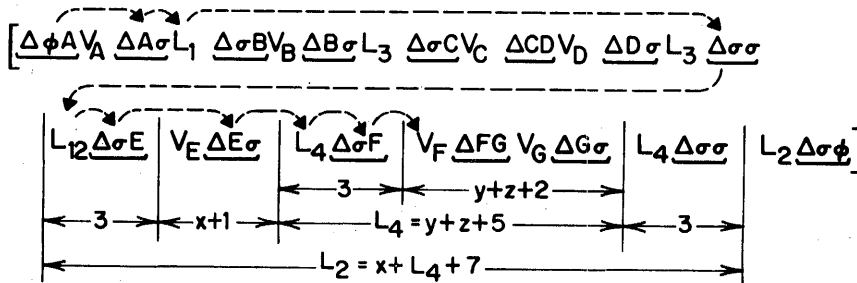 [ΔϕAV_A ΔAσL_1 ΔσBV_B ΔBσL_3 ΔσCV_C ΔCDV_D ΔDσL_3 Δσσ
L_12ΔσE V_EΔEσ L_4ΔσF V_FΔFG V_GΔGσ L_4Δσσ L_2Δσϕ]
3 y+z+2
3 x+1 L_4=y+z+5 3
L_2=x+L_4+7